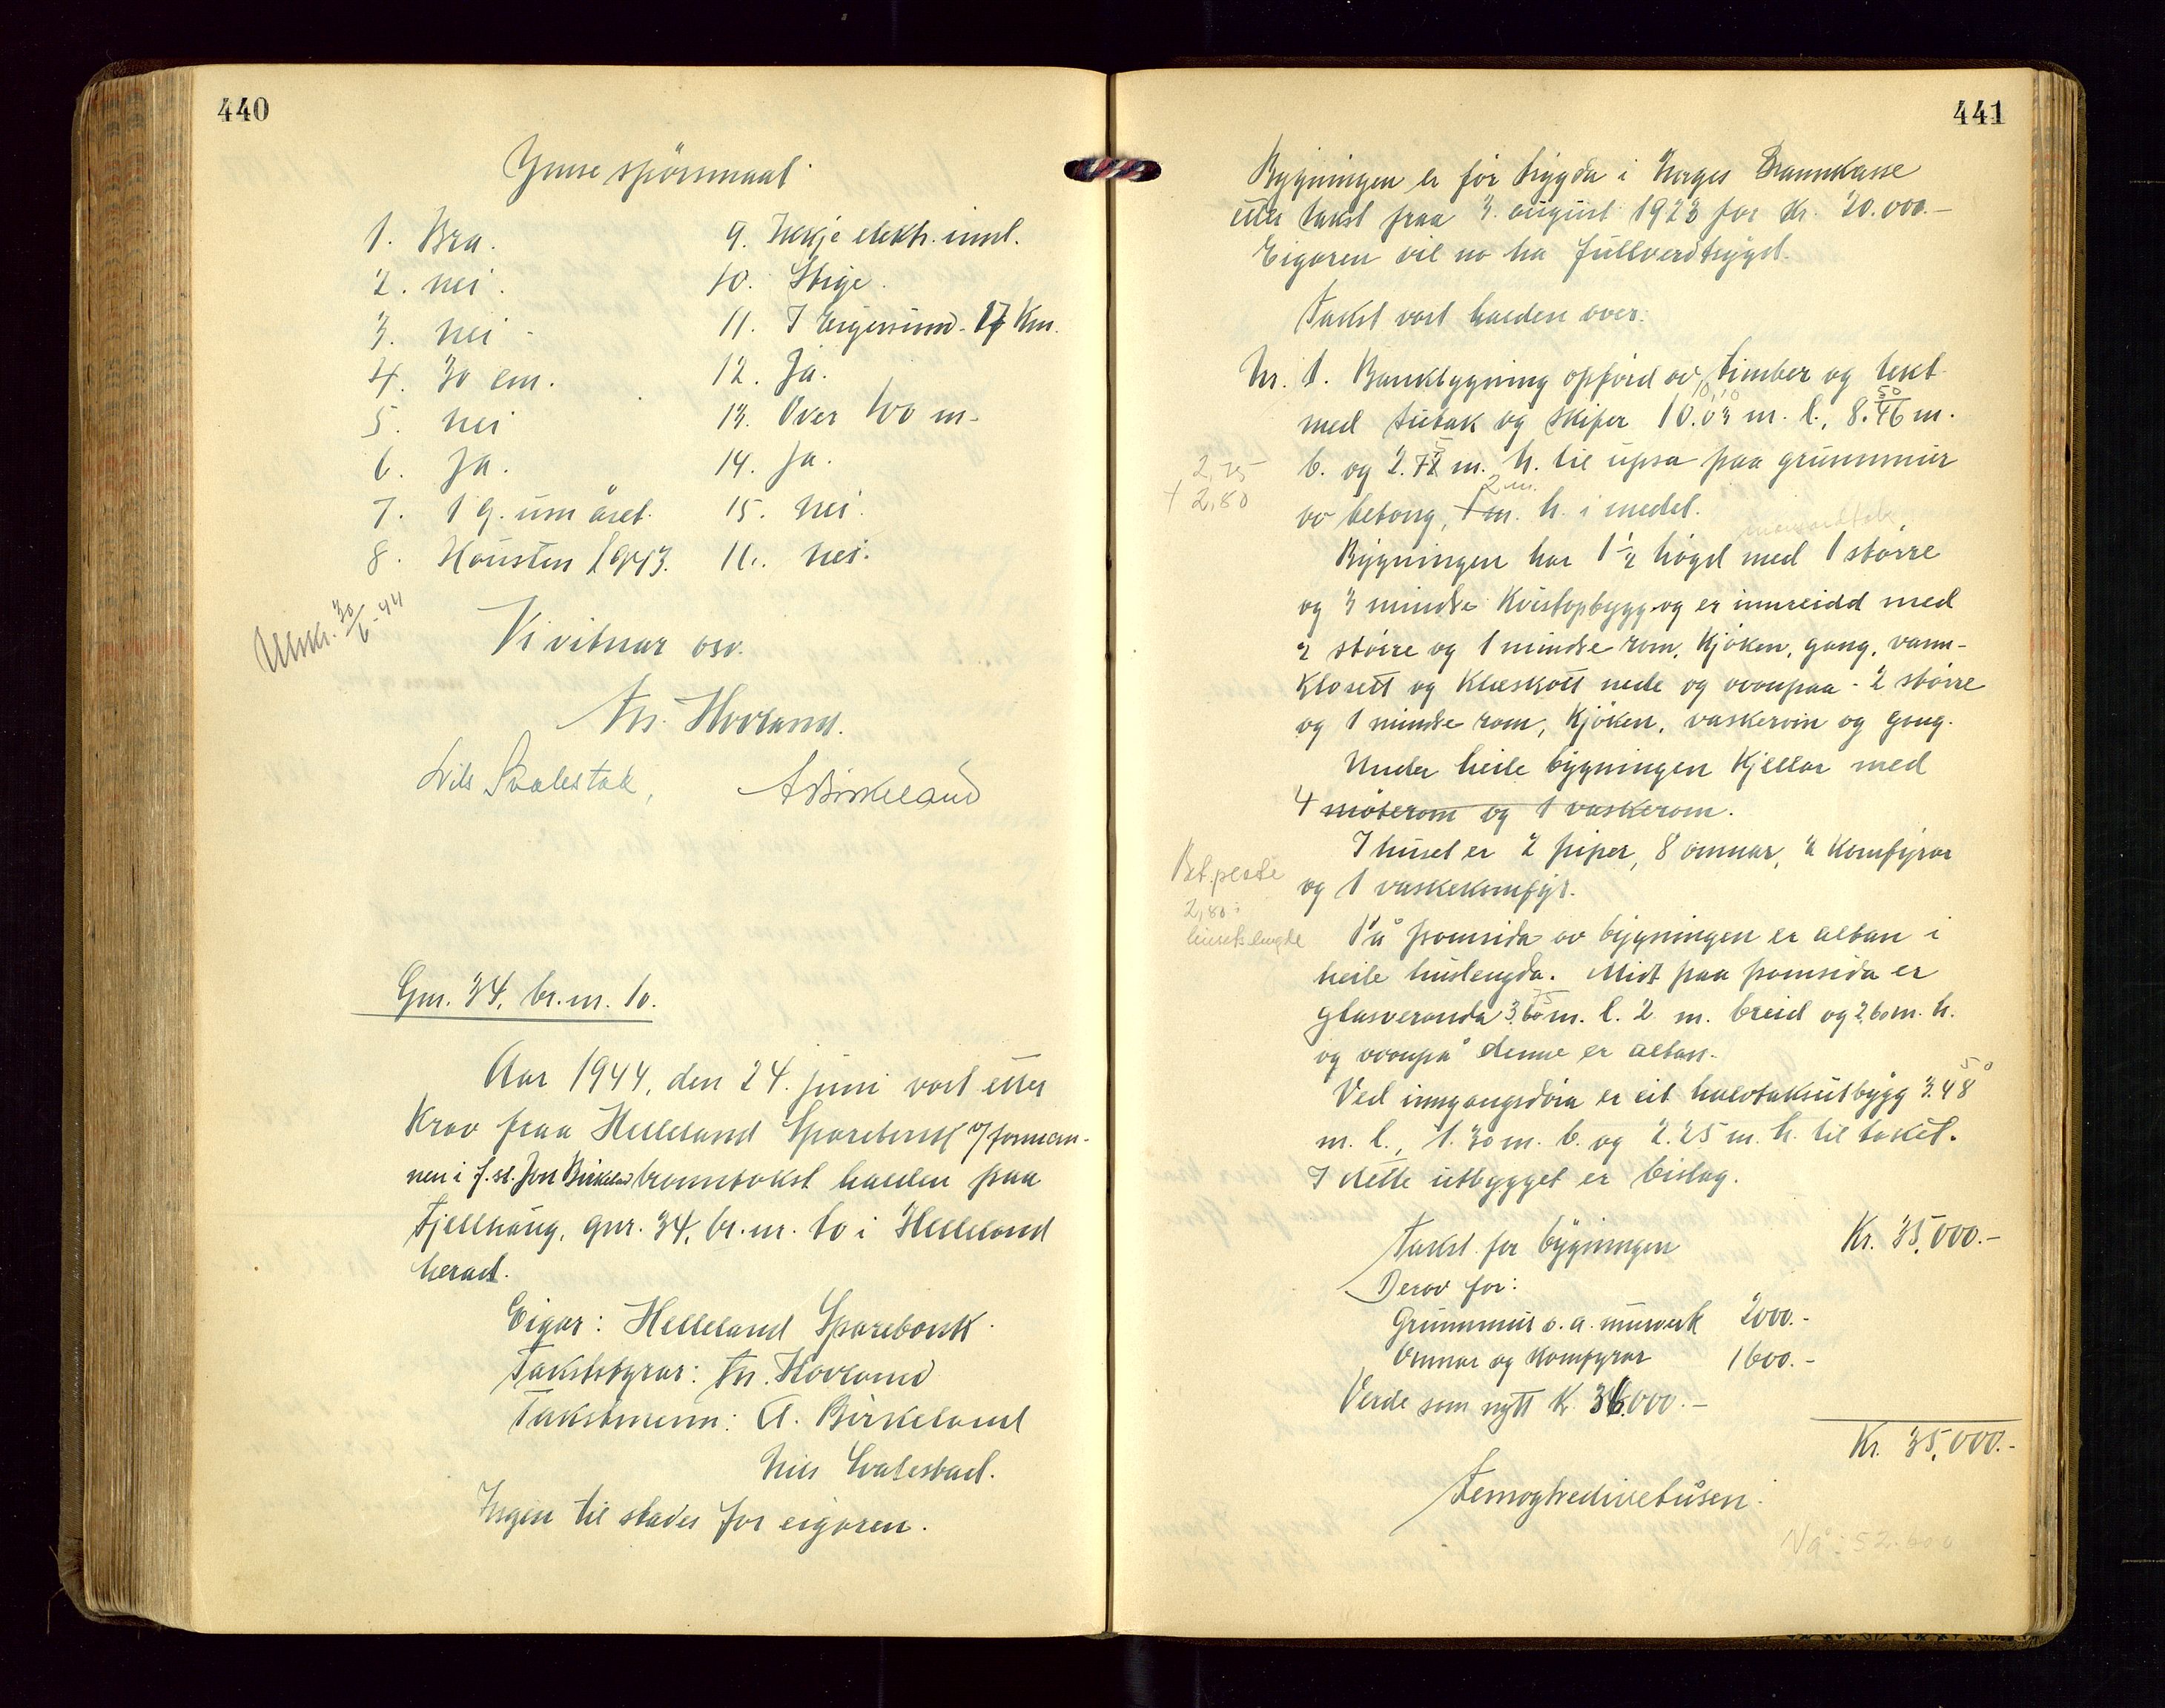 440
Ymse spörsmaal
1. Bra.
2. nei.
3. nei -
4. 30 cm.
5. nei
6. Ja.
7. 1 g. um året.
8. Hausten 1943.
9. Ikkje elektr. innl.
10. Stige.
11. I Eigersund - 17 Km.
12. Ja.
13. Over 100 m-
14. Ja.
15. nei.
16. nei.
Utskr. 30/6-44
Vi vitnar osv.
Tn. Hovland.
Nils Svalestad, A Birkeland
Gnr. 34, br.nr. 10.
Aar 1944, den 24. juni vart etter
Krav fraa Helleland Sparebank v/ forman-
nen i f.st. Jon Birkeland branntakst halden paa
Fjellhaug, gnr. 34, br.nr. 10 i Helleland
herad.
Eigar: Helleland Sparebank.
Takststyrar: Tn. Hovland
Takstmenn: A. Birkeland
Nils Svalestad.
Ingen til stades for eigaren.
441
Bygningen er för trygda i Norges Brannkasse
etter takst fraa 3. august 1923 for Kr. 20.000.-
Eigaren vil no ha fullverdtrygd.
Takst vart halden over:
Nr. 1. Bankbygning opförd av timber og tekt
10,10 50
med tretak og skifer 10.03 m. l., 8.46 m.
2,75
+ 2,80
b. og 2.72 m. h. til upsa paa grunnmur
2 m.
av betong, 1 m. h. i medel.
Bygningen har 1½ högd med 1 större
og 3 mindre Kvistopbygg og er innreidd med
2 större og 1 mindre rom, Kjöken, gang, vann-
Klosett og Klæskott nede og ovanpaa - 2 större
og 1 mindre rom, Kjöken, vaskerom og gang.
Under heile bygningen Kjellar med
4 möterom og 1 vaskerom.
I huset er 2 piper, 8 omnar, 2 Komfyrar
og 1 vaskekomfyr.
Bet. plate
2,80 i
husets lengde
På framsida av bygningen er altan i
heile huslengda. Midt paa framsida er
75
glasveranda 3.60 m. l. 2 m. breid og 2.60 m. h.
og ovanpå denne er altan.
50
Ved inngangsdöra er eit halvtaksutbygg 3.48
m. l., 1.30 m. b. og 2.25 m. h. til taket.
I dette utbygget er bislag.
Takst for bygningen Kr. 35,000.-
Derav for:
Grunnmur o. a. murverk 2000.-
Omnar og Komfyrar 1600.-
Verde som nytt K. 36.000.-
Kr. 35,000.-
Femogtredivetusen.
Nå: 52.600